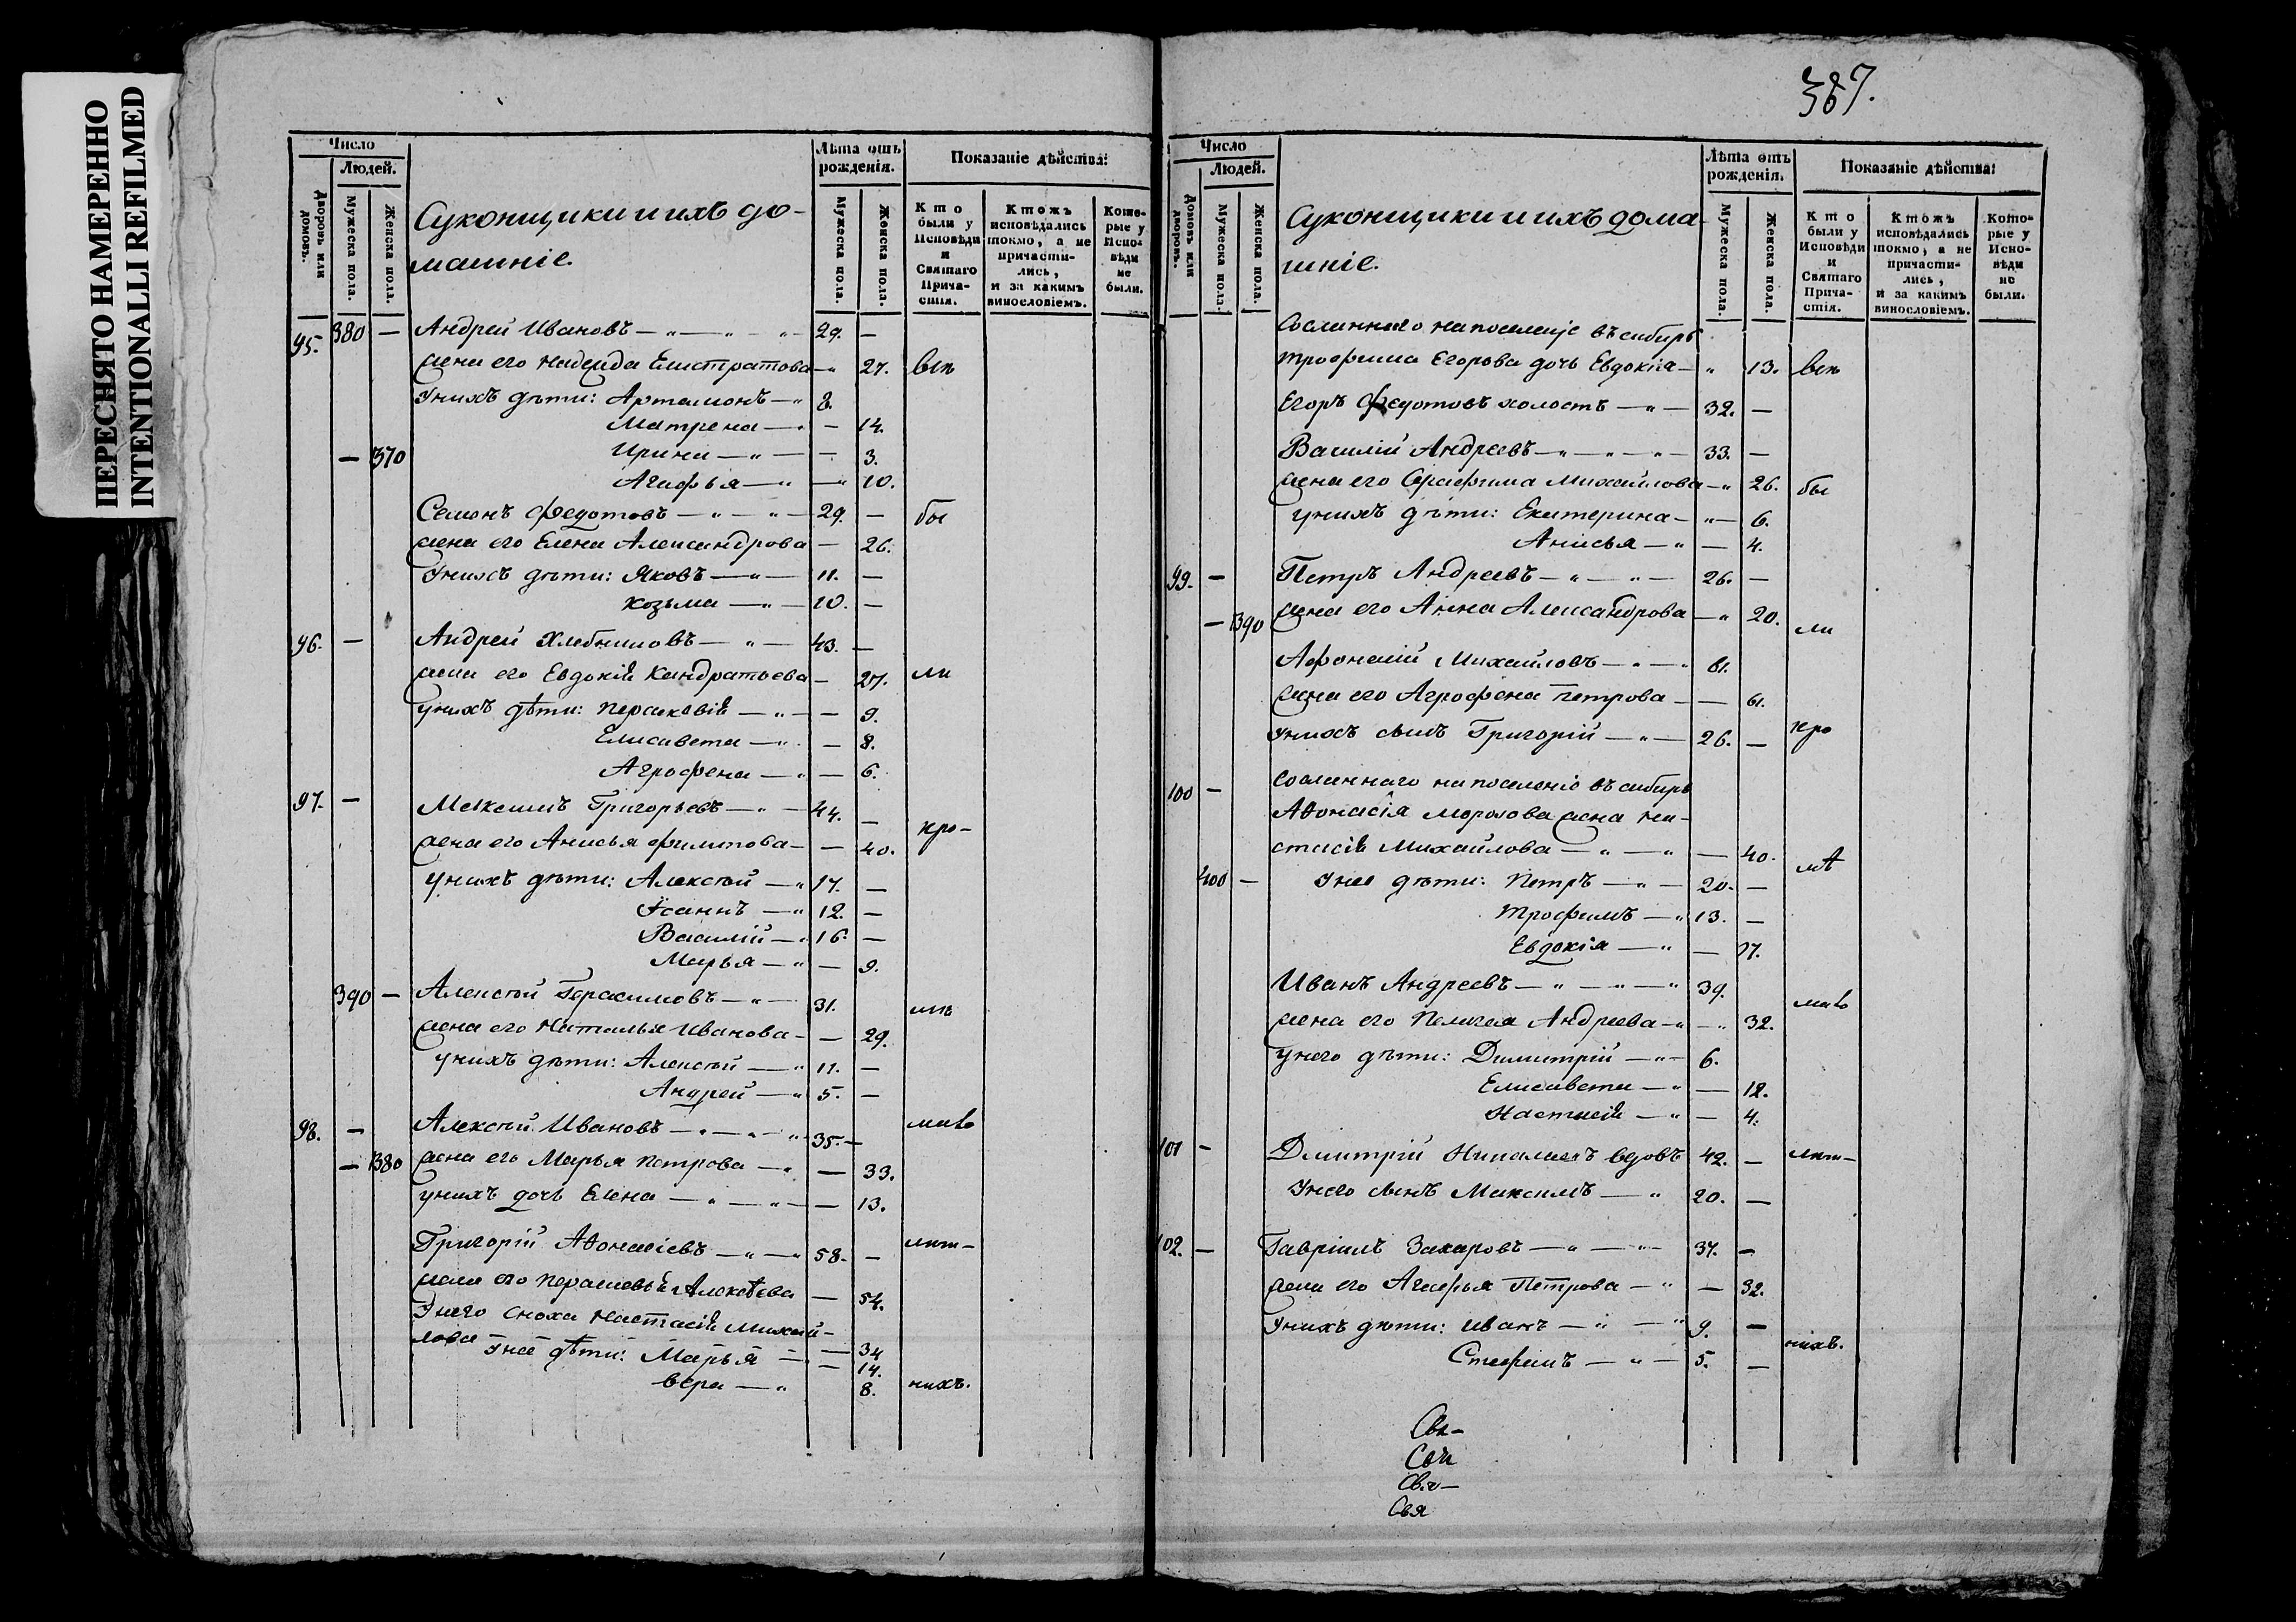 ПЕРЕСНЯТО НАМЕРЕННО
INTENTIONALLI REFILMED
Число
Людей.
Дворовъ или домовъ.
Мужеска пола.
Женска пола.
Суконщики и ихъ до-
машніе.
Лѣта отъ рожденія.
Мужеска пола.
Женска пола.
Показаніе дѣйства:
Кто были у Исповѣди и Святаго Прича-стія.
Ктожъ исповѣдались токмо, а не причасти-лись, и за какимъ винословіемъ.
Кото-рые у Испо-вѣди не были.
95. 380 — Андрей Ивановъ — 29. —
жена его Надежда Елистратова — 27. всѣ
У нихъ дѣти: Артамонъ — 8.
Матрена — 14.
— 1370 Ирина — 3.
Агафья — 10.
Семенъ Федотовъ — 29. — бы
жена его Елена Александрова — 26.
У нихъ дѣти: Яковъ — 11. —
Козьма — 10. —
96. — Андрей Хлебниковъ — 43. —
жена его Евдокія Кандратьева — 27. ли
у нихъ дѣти: Парасковія — 9.
Елисавета — 8.
Агрофена — 6.
97. — Максимъ Григорьевъ — 44. —
жена его Анисья Филипова — 40. кро-
У нихъ дѣти: Алексѣй — 17. —
Іоаннъ — 12. —
Василій — 16. —
Марья — 9.
390 — Алексѣй Герасимовъ — 31. мѣ
жена его Наталья Иванова — 29.
У нихъ дѣти: Алексѣй — 11. —
Андрей — 5. —
98. — Алексѣй Ивановъ — 35. — мало
— 1380 жена его Марья Петрова — 33.
у нихъ дочь Елена — 13.
Григорій Афонасіевъ — 58. — лѣт-
жена его Парасковья Алексѣева — 54.
У него сноха Настасія Михай-
лова — 34
У нее дѣти: Марья — 14.
Вера — 8. нихъ.
387.
Число
Людей.
Домовъ или дворовъ.
Мужеска пола.
Женска пола.
Суконщики и ихъ дома-
шніе.
Лѣта отъ рожденія.
Мужеска пола.
Женска пола.
Показаніе дѣйства:
Кто были у Исповѣди и Святаго Прича-стія.
Ктожъ исповѣдались токмо, а не причасти-лись, и за какимъ винословіемъ.
Кото-рые у Испо-вѣди не были.
Сосланнаго на поселеніе въ сибирь
Трофима Егорова дочь Евдокія — 13. всѣ
Егоръ Федотовъ холостъ — 32. —
Василій Андреевъ — 33. —
жена его Серафима Михайлова — 26. бы
у нихъ дѣти: Екатерина — 6.
Анисья — 4.
99. — Петръ Андреевъ — 26. —
— 1390 жена его Анна Александрова — 20. ли
Афонасій Михайловъ — 61.
жена его Агрофена Петрова — 61.
У нихъ сынъ Григорій — 26. — кро
100 — Сосланнаго на поселеніе въ сибирь
Афонасія Морозова жена На-
стасія Михайлова — 40. мѣ
400 — У нее дѣти: Петръ — 20. —
Трофимъ — 13. —
Евдокія — 17.
Иванъ Андреевъ — 39. мало
жена его Пелагея Андреева — 32.
У него дѣти: Димитрій — 6.
Елисавета — 12.
Настасія — 4.
101 — Димитрій вдовъ 42. — лѣт-
У него сынъ Максимъ — 20. —
102. — Гавріилъ Захаровъ — 37. —
жена его Агафья Петрова — 32.
У нихъ дѣти: Иванъ — 9. — нихъ.
Стефанъ — 5. —
Свя